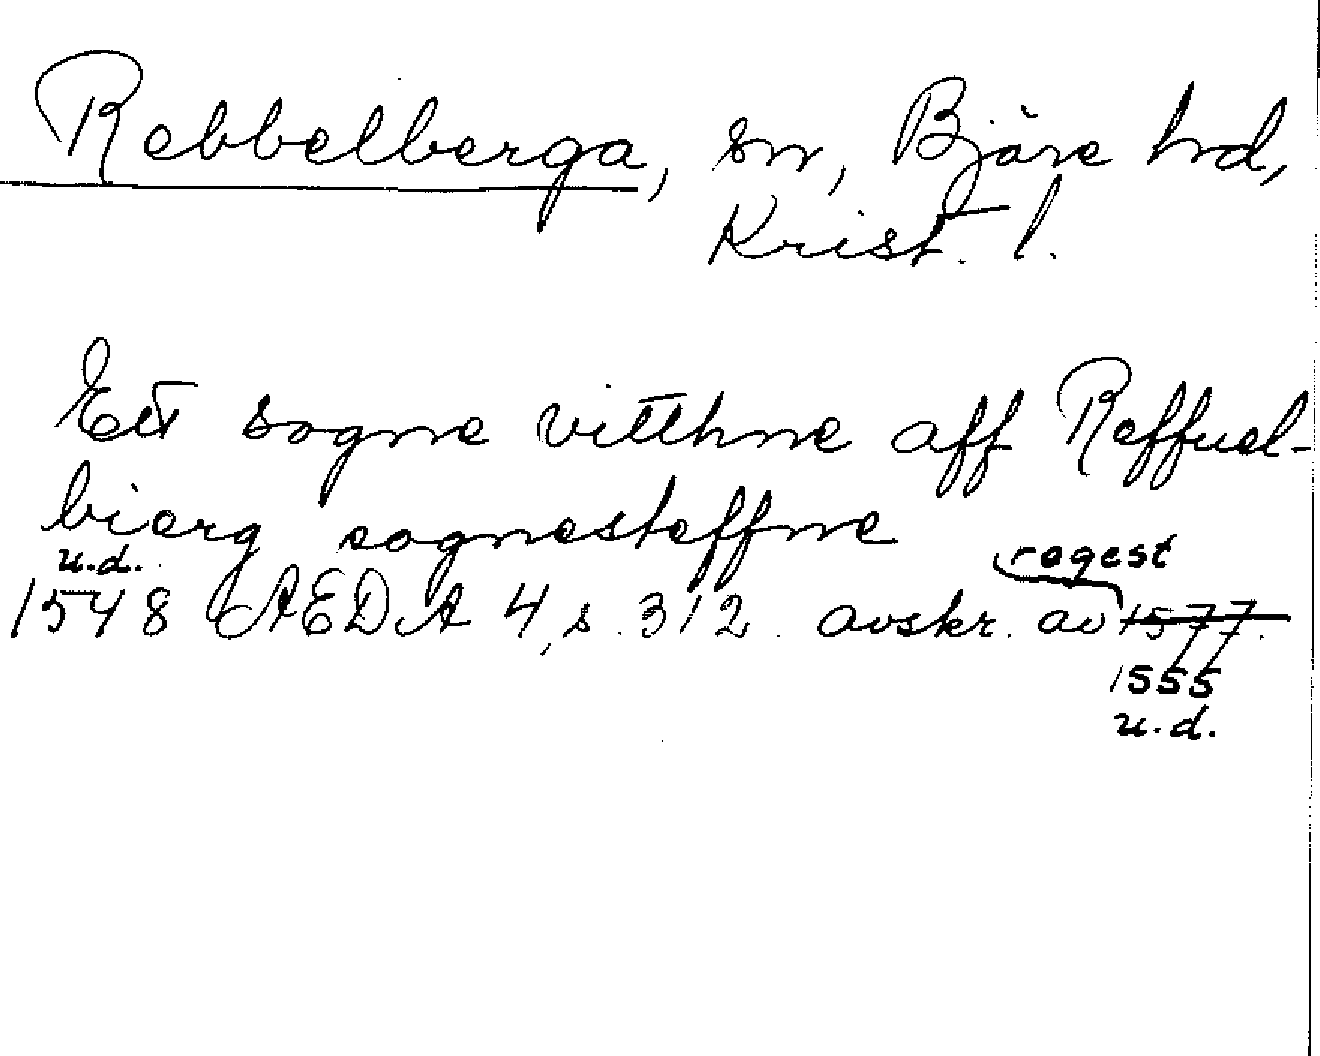 Rebbelberga, sn, Bjäre hd,
Krist. l.
Ett sogne vitthne aff Reffuel-
bierg sognesteffne
u.d.
regest
1548 ÆDA 4, s. 312. avskr. av 1577.
1555
u.d.